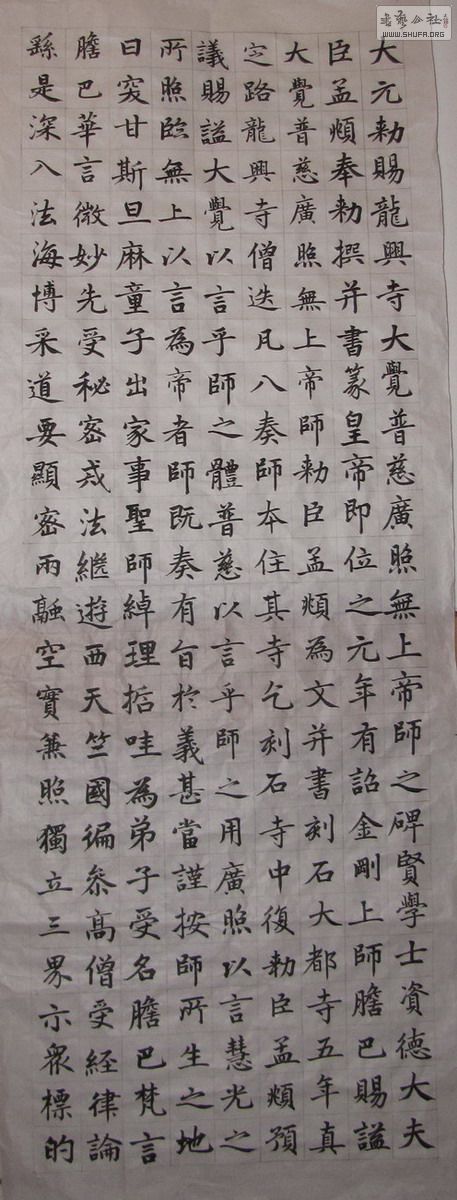 大元勅賜龍興寺大覺普慈廣照無上帝師之碑賢學士資德大夫
臣孟頫奉勅撰并書篆皇帝即位之元年有詔金剛上師膽巴賜謚
大覺普慈廣照無上帝師勅臣孟頫為文并書刻石大都寺五年真
定路龍興寺僧迭凡八奏師本住其寺乞刻石寺中復勅臣孟頫預
議賜謚大覺以言乎師之體普慈以言乎師之用廣照以言慧光之
所照臨無上以言為帝者師既奏有旨於義甚當謹按師所生之地
曰突甘斯旦麻童子出家事聖師綽理括哇為弟子受名膽巴梵言
膽巴華言微妙先受秘密戒法繼遊西天竺國徧叅高僧受經律論
繇是深入法海博采道要顯密兩融空實兼照獨立三界示衆標的
書藝公社
WWW.SHUFA.ORG